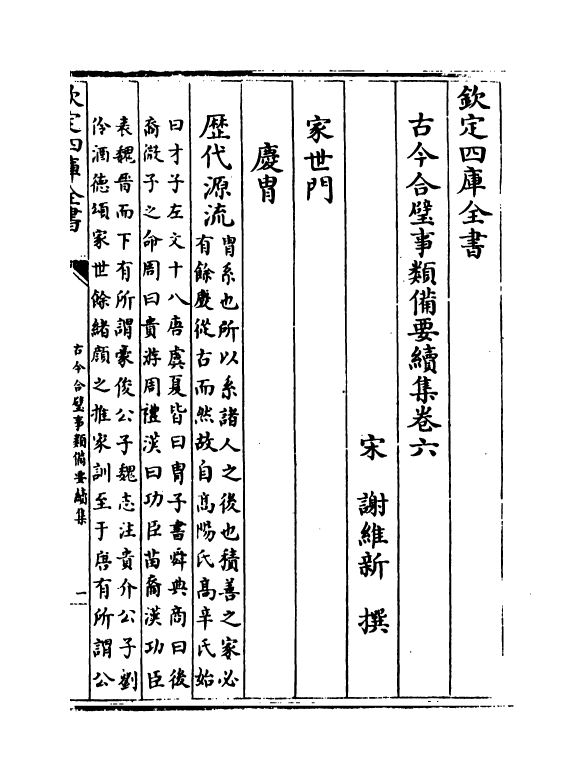 欽定四庫全書
古今合璧事類備要續集卷六
宋　謝維新　撰
家世門
慶胄
歴代源流
胄系也所以系諸人之後也積善之家必
有餘慶從古而然故自髙陽氏髙辛氏始
曰才子左文十八唐虞夏皆曰胄子書舜典商曰後
裔微子之命周曰貴游周禮漢曰功臣苗裔漢功臣
表魏晉而下有所謂豪俊公子魏志注貴介公子劉
伶酒德頌家世餘緒顔之推家訓至于唐有所謂公
欽定四庫全書
古今合璧事類備要續集
一